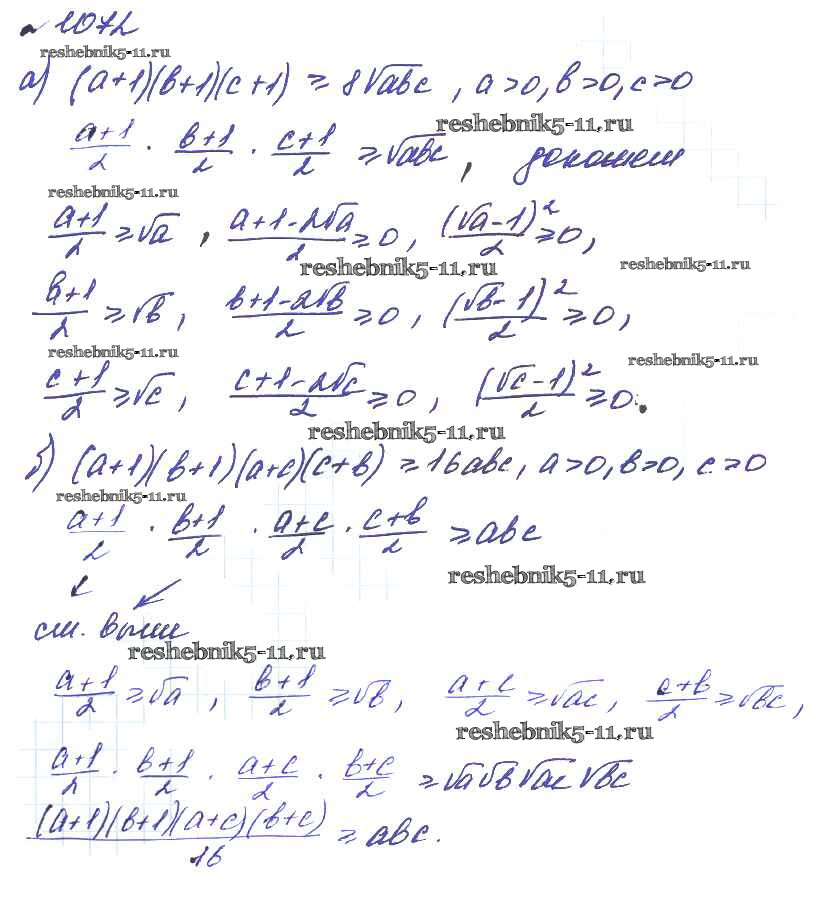 № 1072
reshebnik5-11.ru
а) (a+1)(b+1)(c+1) ≥ 8√abc , a>0, b>0, c>0
reshebnik5-11.ru
(a+1)/2 · (b+1)/2 · (c+1)/2 ≥ √abc , докажем
reshebnik5-11.ru
(a+1)/2 ≥ √a , (a+1-2√a)/2 ≥ 0 , (√a-1)²/2 ≥ 0 ,
reshebnik5-11.ru reshebnik5-11.ru
(b+1)/2 ≥ √b , (b+1-2√b)/2 ≥ 0 , (√b-1)²/2 ≥ 0 ,
reshebnik5-11.ru reshebnik5-11.ru
(c+1)/2 ≥ √c , (c+1-2√c)/2 ≥ 0 , (√c-1)²/2 ≥ 0 .
reshebnik5-11.ru
б) (a+1)(b+1)(a+c)(c+b) ≥ 16abc , a>0, b>0, c>0
reshebnik5-11.ru
(a+1)/2 · (b+1)/2 · (a+c)/2 · (c+b)/2 ≥ abc
reshebnik5-11.ru
см. выше
reshebnik5-11.ru
(a+1)/2 ≥ √a , (b+1)/2 ≥ √b , (a+c)/2 ≥ √ac , (c+b)/2 ≥ √bc ,
reshebnik5-11.ru
(a+1)/2 · (b+1)/2 · (a+c)/2 · (b+c)/2 ≥ √a√b√ac√bc
(a+1)(b+1)(a+c)(b+c)/16 ≥ abc.